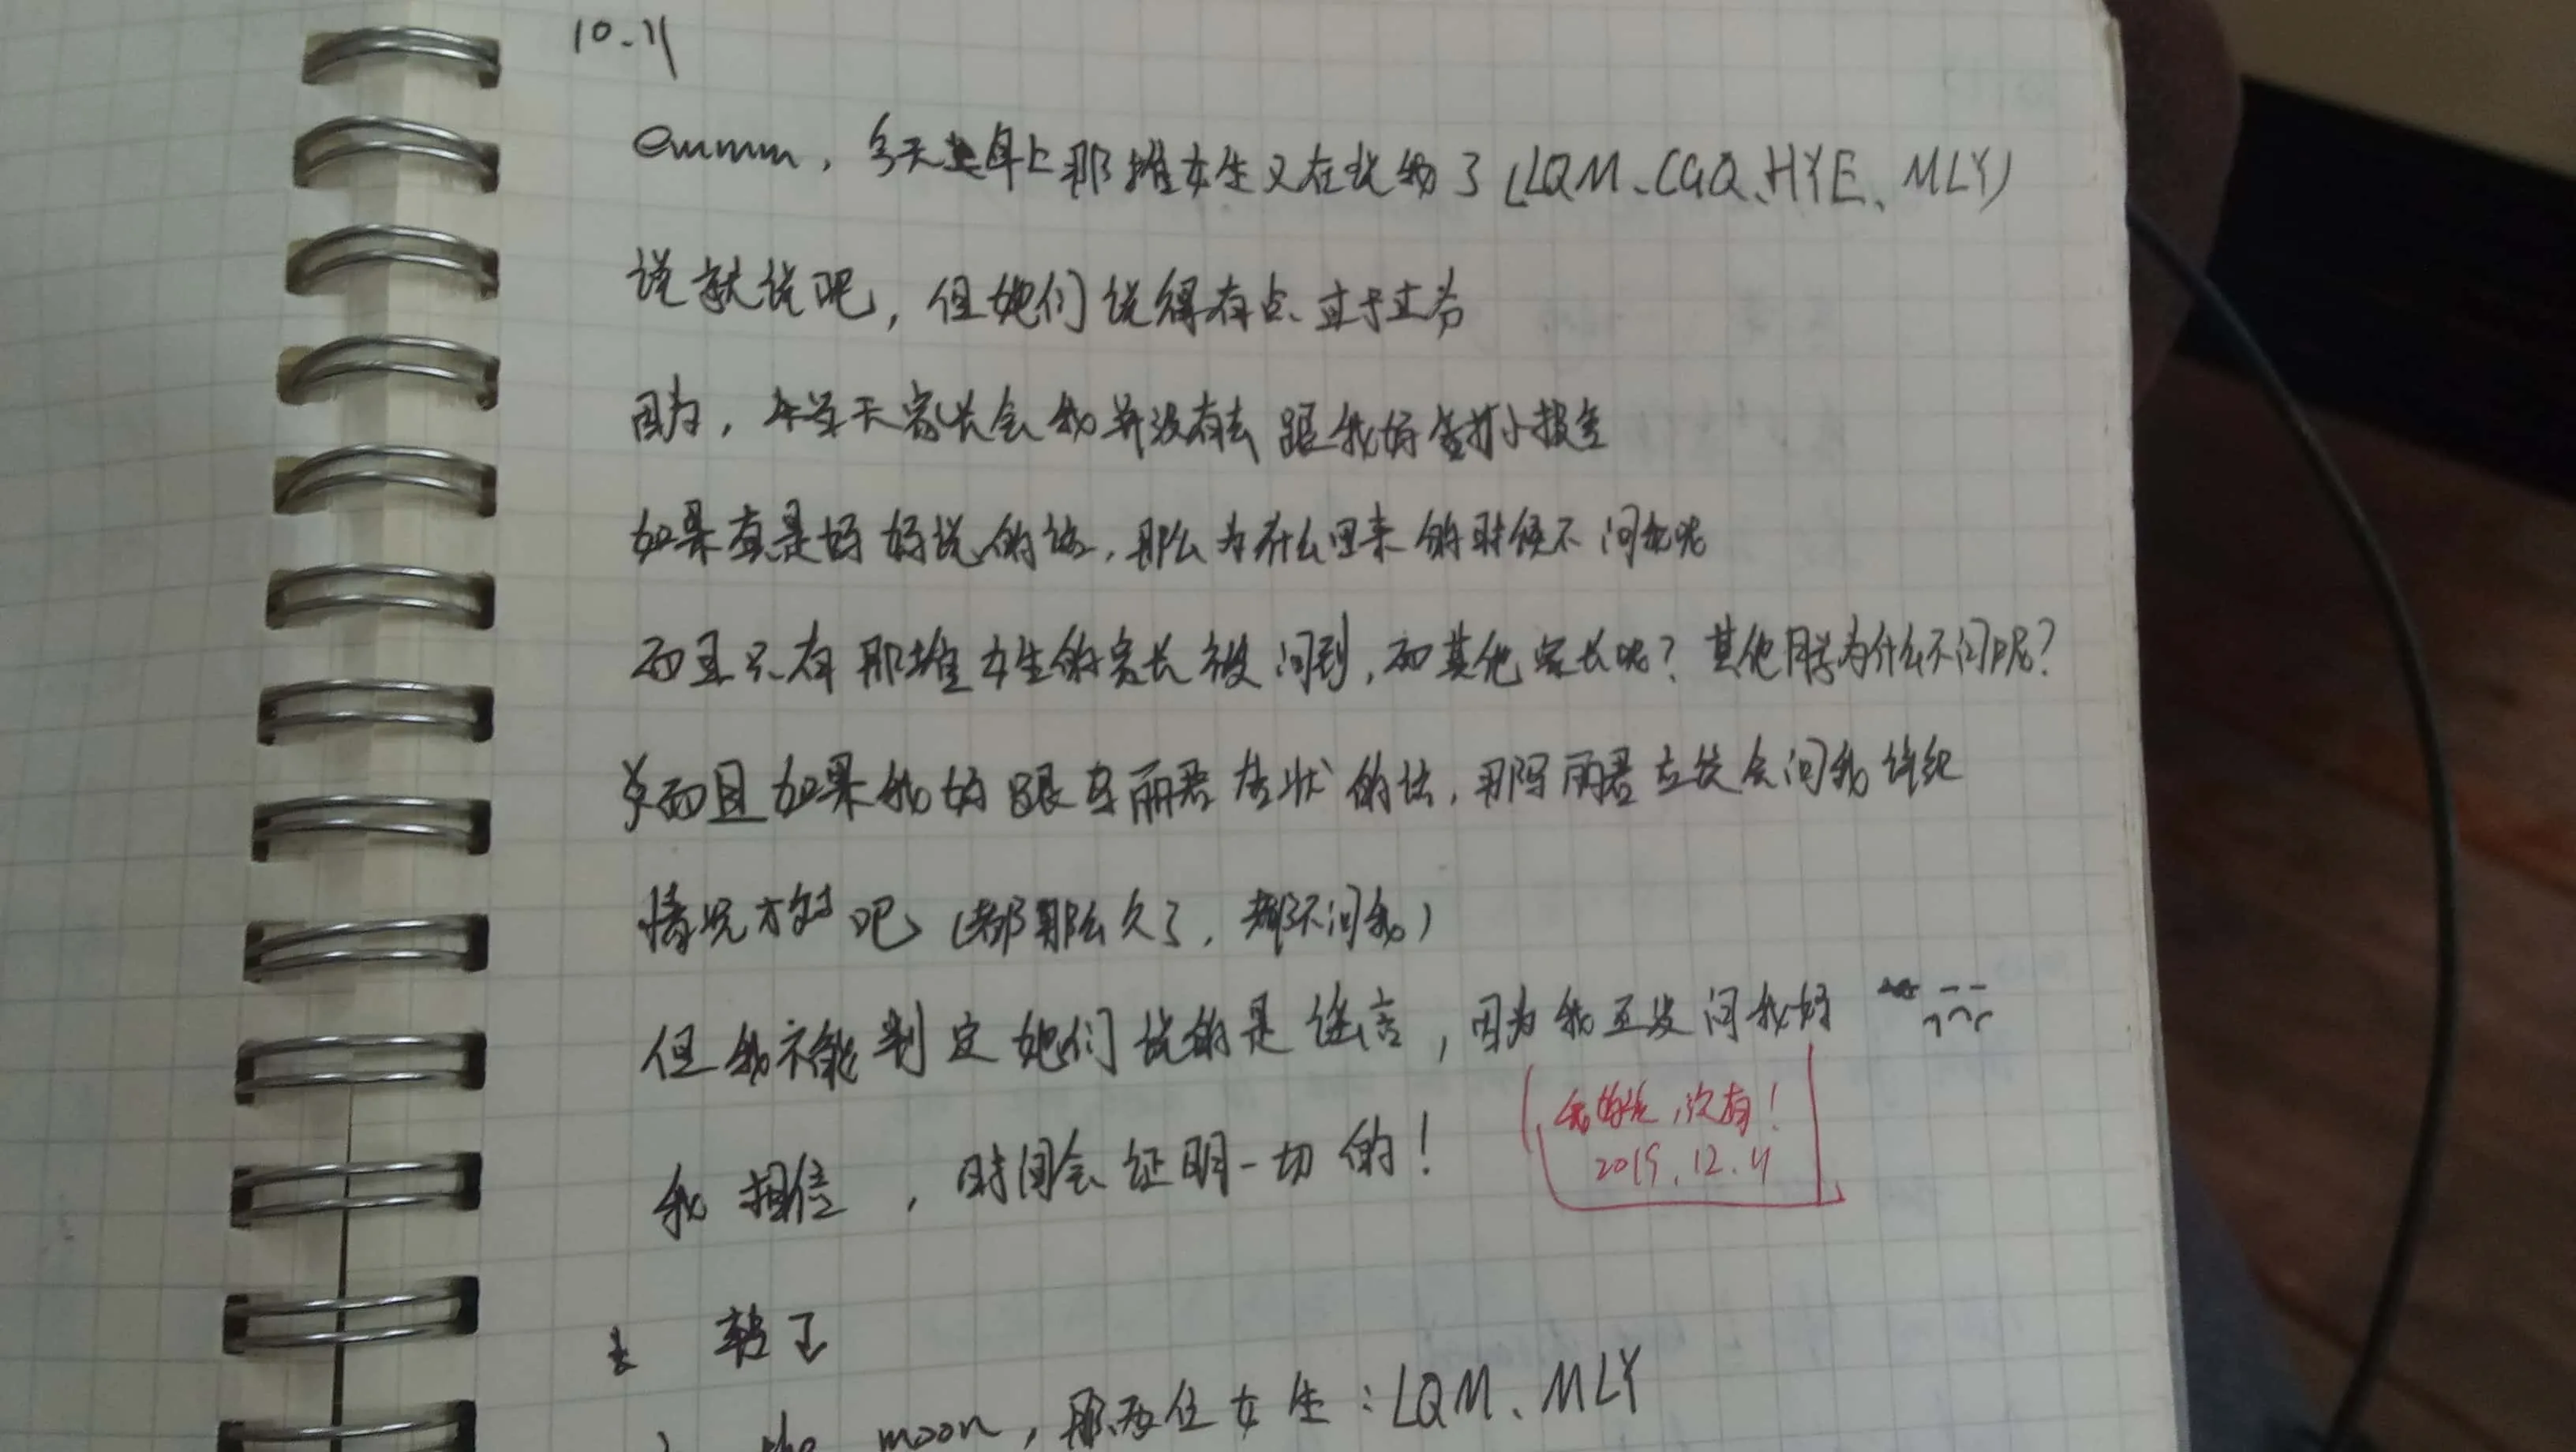 10.11
emmm，今天早上那堆女生又在说我了(LQM、CGQ、HYE、MLY)
说就说吧，但她们说得有点过于过分
因为，天家长会我并没有去跟我妈打小报告
如果真是我妈说的话，那么为什么回来的时候不问我呢
而且只有那堆女生的家长被问到，而其他家长呢？其他同学为什么不问呢？
而且如果我妈跟李丽君告状的话，那李丽君应该会问我详细
情况才对吧(都那么久了，都不问我)
但我不能判定她们说的是谣言，因为我还没问我妈
我妈说，没有！
2019.12.4
我相信，时间会证明一切的！
the moon，那两位女生：LQM、MLY